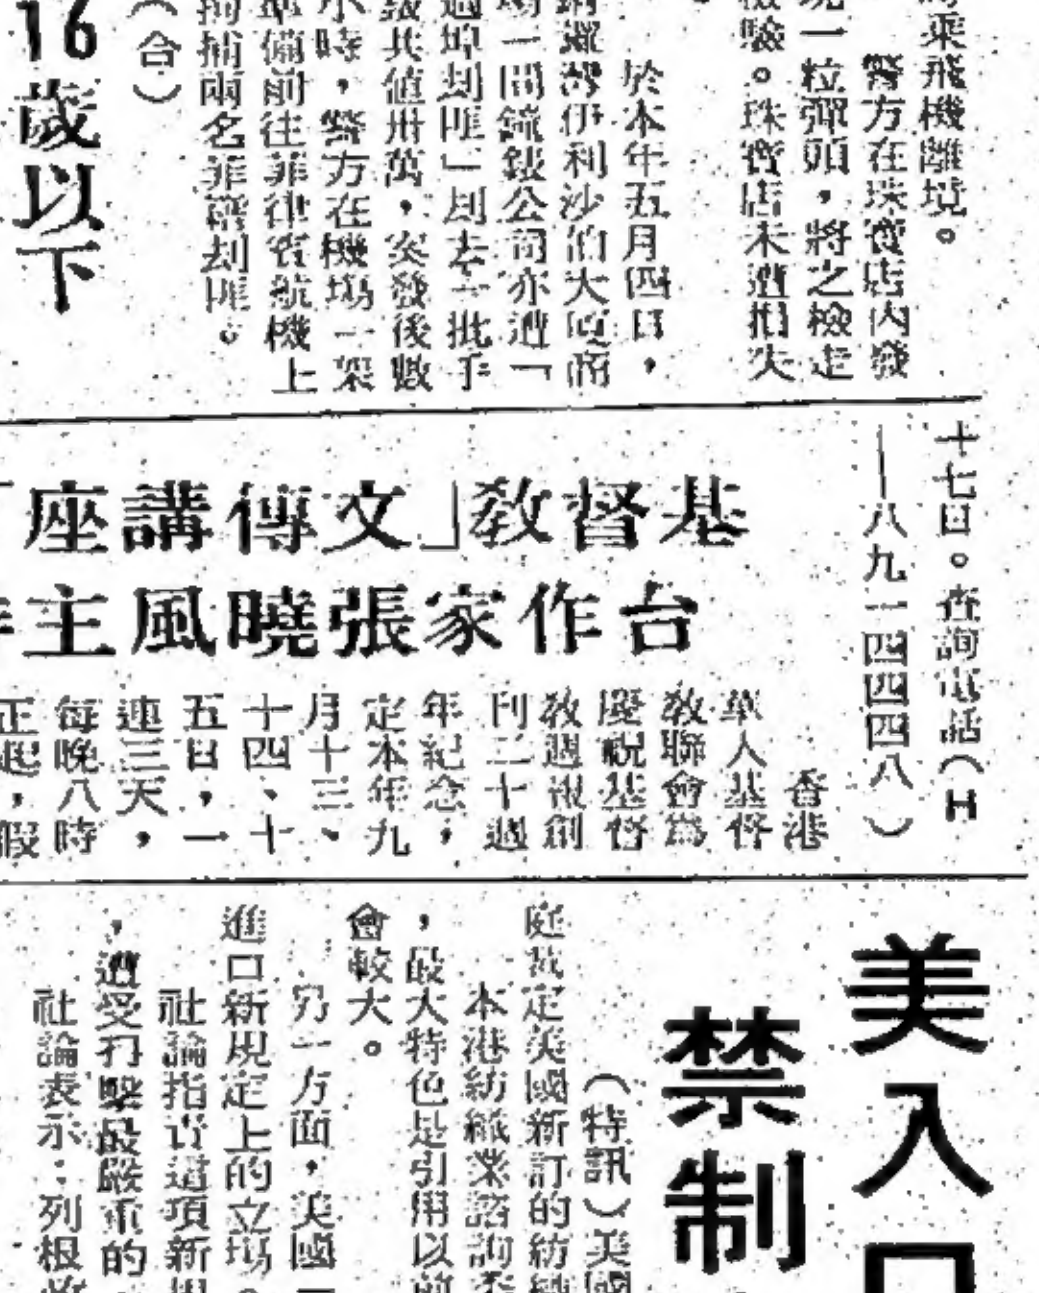 乘飛機離境。
警方在珠寶店內發
現一粒彈頭，將之檢走
檢驗。珠寶店未遭損失
於本年五月四日，
銅鑼灣伊利沙伯大廈商
場一間鐘錶公司亦遭「
過埠刦匪」刦去一批手
錶共值卅萬，案發後數
小時，警方在機塲一架
準備前往菲律賓航機上
拘捕兩名菲籍刦匪。
（合）
16歲以下
十七日。查詢電話（H
—八九一四四四八）
基督教「文傳講座
台作家張曉風主
香港
華人基督
教聯會爲
慶祝基督
教週報創
刊二十週
年紀念，
定本年九
月十三、
十四、十
五日，一
連三天，
每晚八時
正起，假
美入口
禁制
（特訊）美國
庭裁定美國新訂的紡織
本港紡織業諮詢委
，最大特色是引用以前
會較大。
另一方面，美國
進口新規定上的立塲。
社論指責這項新規
，遭受打擊最嚴重的
社論表示：列根政